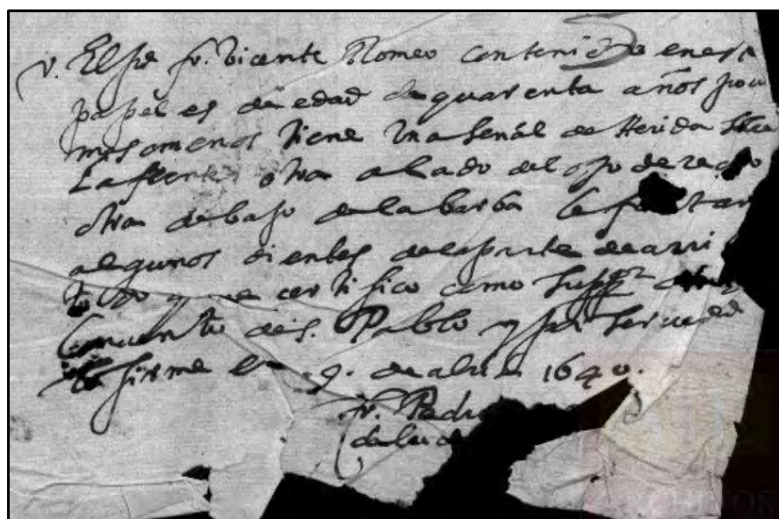 v. El pe fr. Vicente Romeo contenido en est
papel es de edad de quarenta años pocu
mas o menos tiene una señal de Herida sobre
La frente otra al lado del ojo derecho
otra debajo de la barba le faltan
algunos dientes de la parte de arri
todo que certifico como Suppor
Conuento de S. Pablo y por ser uerdad
lo firme en 9. de abril 1640.
fr. Pedro